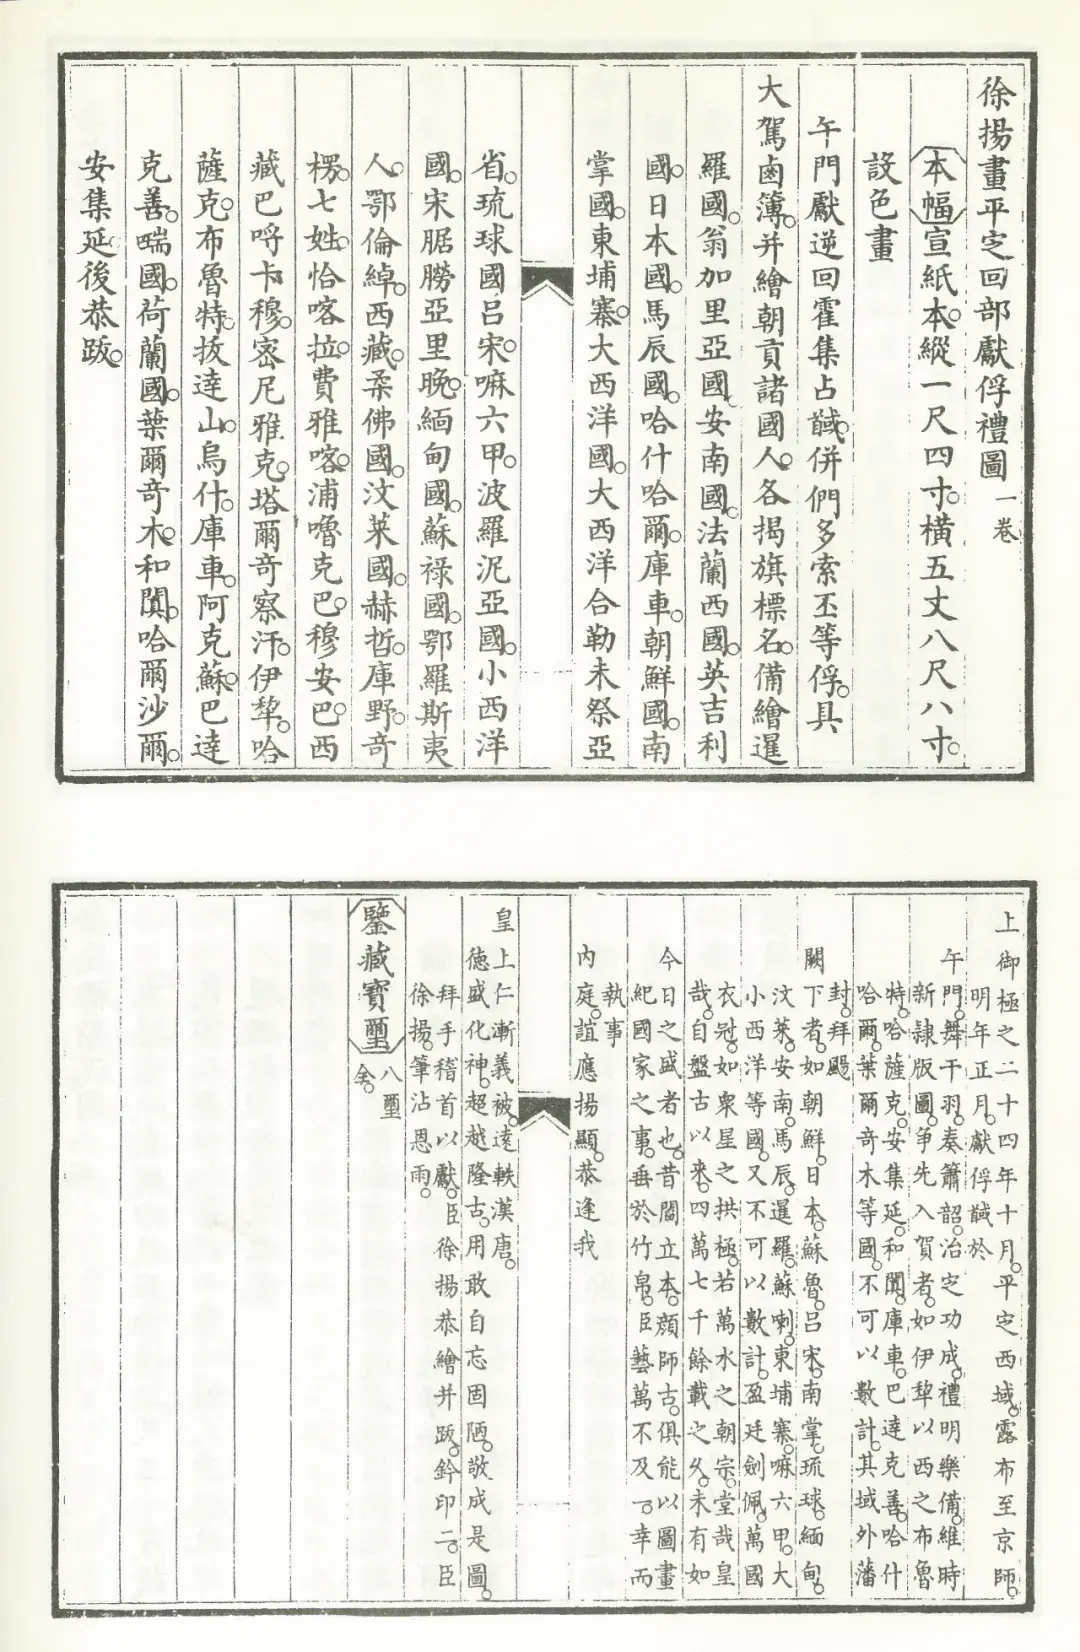 徐揚畫平定回部獻俘禮圖一卷
本幅宣紙本。縱一尺四寸。橫五丈八尺八寸。
設色畫
午門獻逆回霍集占馘。併們多索丕等俘。具
大駕鹵簿。并繪朝貢諸國人。各揭旗標名。備繪暹
羅國。翁加里亞國。安南國。法蘭西國。英吉利
國。日本國。馬辰國。哈什哈爾。庫車。朝鮮國。南
掌國。東埔寨。大西洋國。大西洋合勒未祭亞
省。琉球國呂宋。嘛六甲。波羅泥亞國。小西洋
國。宋腒朥亞里晚。緬甸國。蘇祿國。鄂羅斯夷
人。鄂倫綽。西藏。柔佛國。汶萊國。赫哲。庫野。奇
楞。七姓。恰喀拉。費雅喀。浦嚕克巴。穆安巴。西
藏巴呼卡穆。密尼雅克。塔爾奇察汗。伊犂。哈
薩克。布魯特。拔達山。烏什。庫車。阿克蘇。巴達
克善。喘國。荷蘭國。葉爾奇木。和闐。哈爾沙爾。
安集延。後恭跋。
上御極之二十四年十月。平定西域。露布至京師。
明年正月。獻俘馘於
午門。舞干羽。奏簫韶。治定功成。禮明樂備。維時
新隸版圖。爭先入賀者。如伊犂以西之布魯
特。哈薩克。安集延。和闐。庫車。巴達克善。哈什
哈爾。葉爾奇木等國。不可以數計。其域外藩
封。拜颺
闕下者。如朝鮮。日本。蘇魯。呂宋。南掌。琉球。緬甸。
汶萊。安南。馬辰。暹羅。蘇喇。東埔寨。嘛六甲。大
小西洋等國。又不可以數計。盈廷劍佩。萬國
衣冠。如衆星之拱極。若萬水之朝宗。堂哉皇
哉。自盤古以來。四萬七千餘載之久。未有如
今日之盛者也。昔閻立本。顏師古。俱能以圖畫
紀國家之事。垂於竹帛。臣藝萬不及一。幸而
執事
內庭。誼應揚顯。恭逢我
皇上仁漸義被。遠軼漢唐。
德盛化神。超越隆古。用敢自忘固陋。敬成是圖。
拜手稽首以獻。臣徐揚恭繪并跋。鈐印二。臣
徐揚。筆沾恩雨。
鑒藏寶璽八璽全。